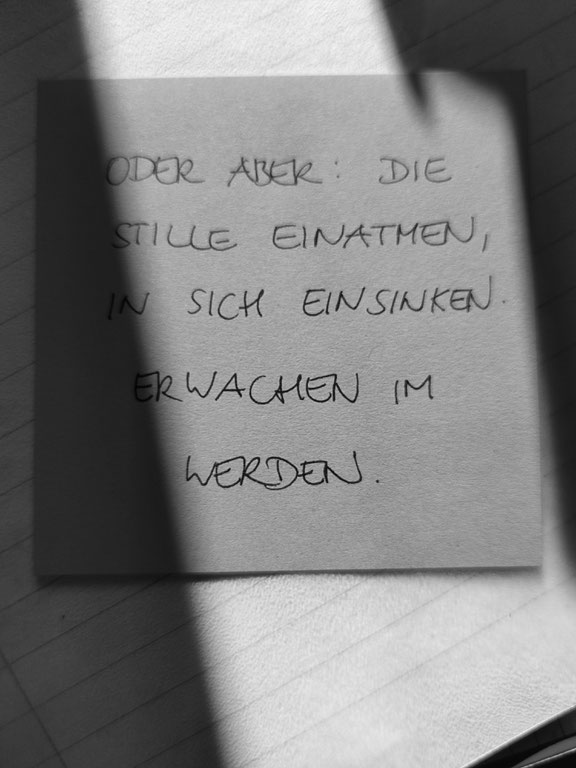 ODER ABER: DIE
STILLE EINATMEN,
IN SICH EINSINKEN.
ERWACHEN IM
WERDEN.